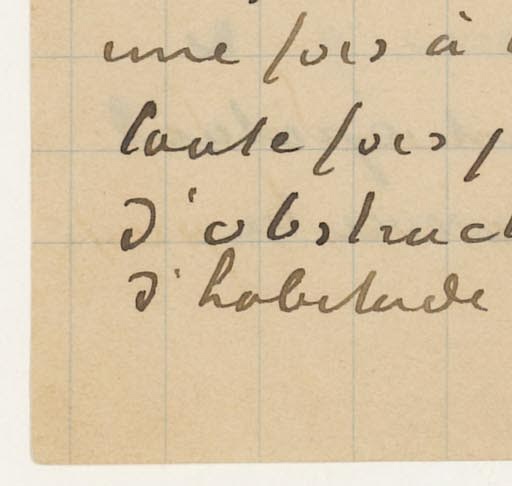 une fois à
toute fois
d'obstruct
d'habitude